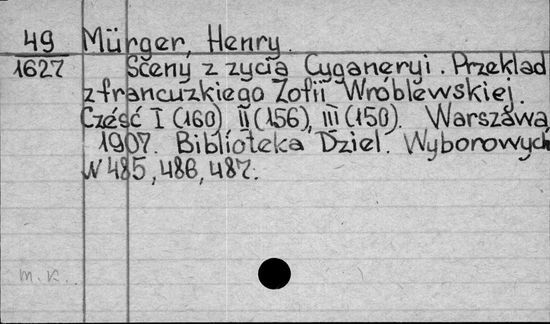 49 Mürger, Henry.
1627 Sceny z zycia Cyganeryi. Przeklad
z francuzkiego Zofii Wróblewskiej.
Część I (160) II (156), III (150). Warszawa
1907. Biblioteka Dziel. Wyborowych
N 485, 486, 487.
m. k.